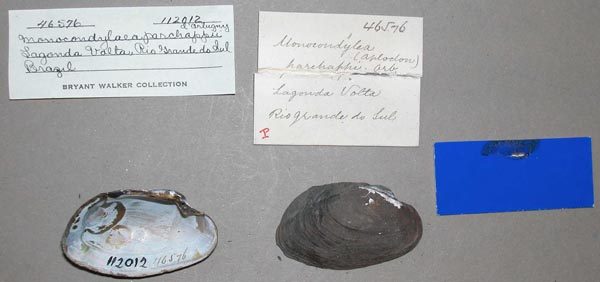 46576 112012
d'Orbigny
Monocondylaea parchappii
Lagonda Volta, Rio Grande do Sul
Brazil
BRYANT WALKER COLLECTION
46576
Monocondylea
(Aplodon)
parchappi Orb
Lagonda Volta
Rio grande do Sul
112012 46576